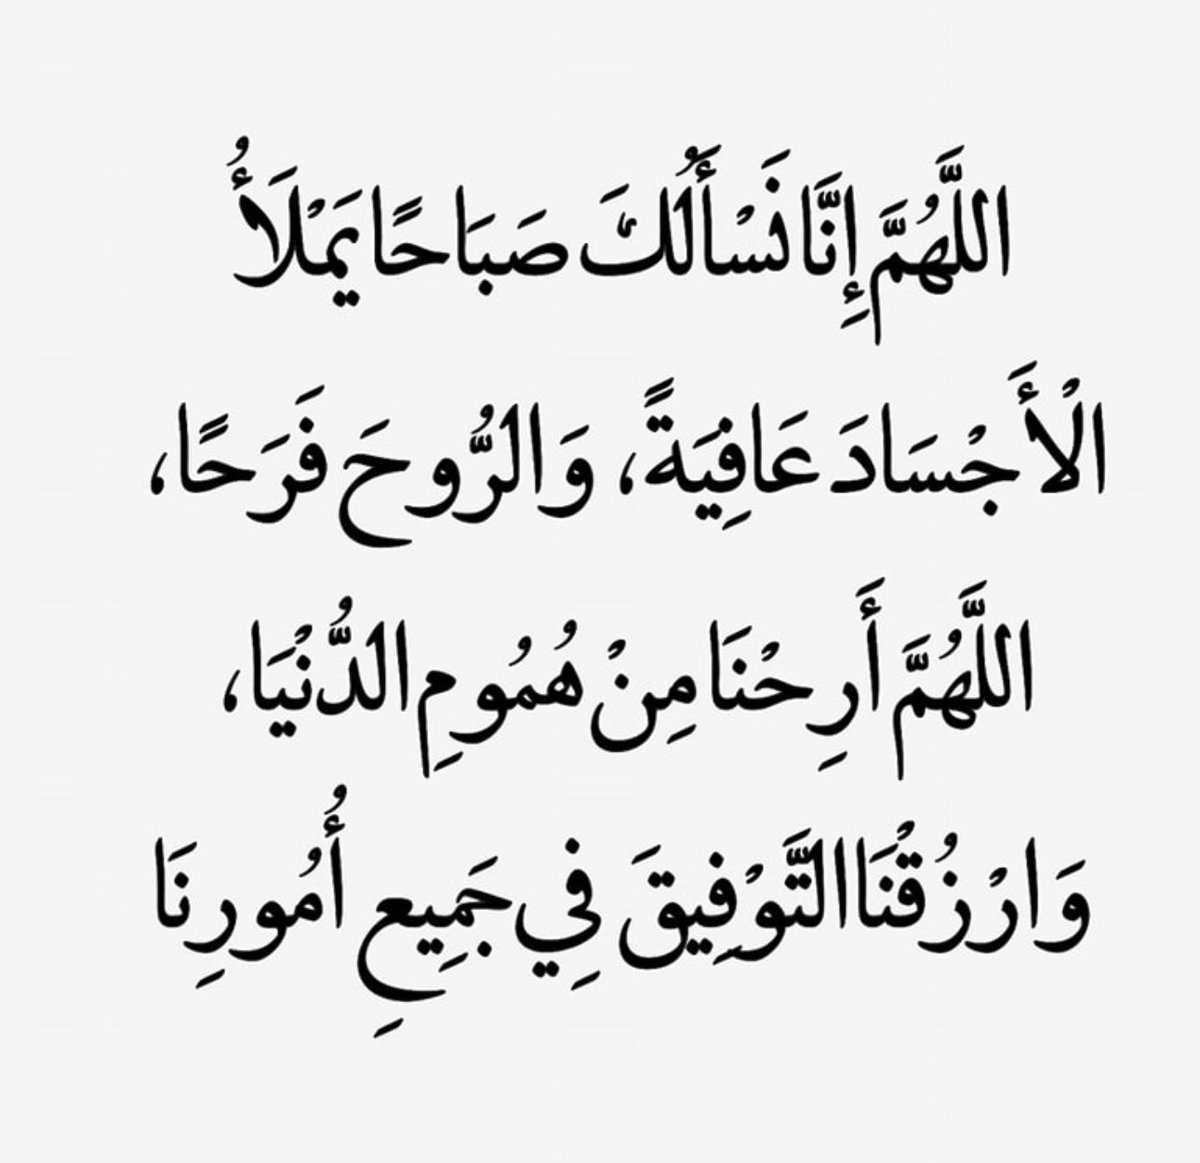 اللَّهُمَّ إِنَّا نَسْأَلُكَ صَبَاحًا يَمْلَأُ
الْأَجْسَادَ عَافِيَةً، وَالرُّوحَ فَرَحًا،
اللَّهُمَّ أَرِحْنَا مِنْ هُمُومِ الدُّنْيَا،
وَارْزُقْنَا التَّوْفِيقَ فِي جَمِيعِ أُمُورِنَا